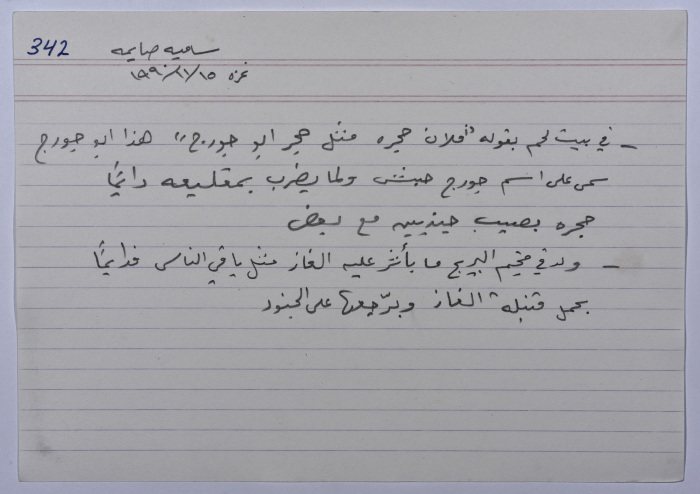 342
ساميه صايمه
غزه ١٩٩٠/١/١٥
- في بيت لحم بقوله "فلان حجره مثل حجر ابو جورج" هذا ابو جورج
سمى على اسم جورج حبش ولما يضرب بمقليعه دائمًا
حجره بصيب جنديين مع بعض
- ولد في مخيم البريج ما بأثر عليه الغاز مثل باقي الناس فدائمًا
بحمل قنبلة الغاز وبرّجعها على الجنود